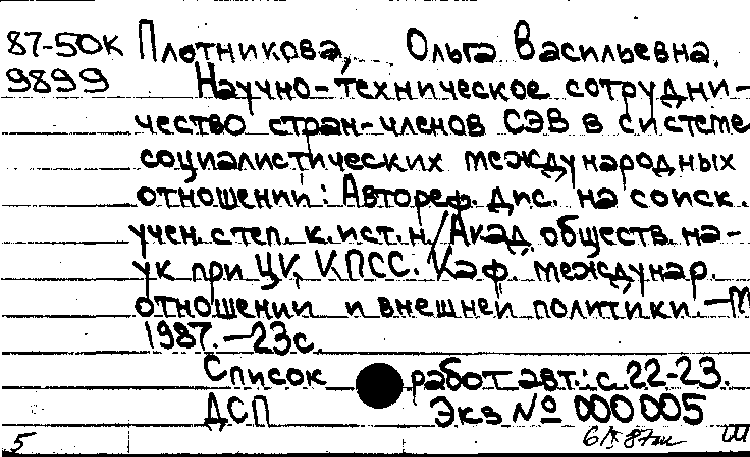 87-50К Плотникова, Ольга Васильевна.
9899 Научно-техническое сотрудни-
чество стран-членов СЭВ в системе
социалистических международных
отношении: Автореф. дис. на соиск.
учен. степ. к. ист. н./Акад. обществ. на-
ук при ЦК КПСС. Каф. междунар.
отношении и внешней политики.—М
1987.—23с.
Список работ авт.: с. 22-23.
ДСП Экз № 000005
5 Ш